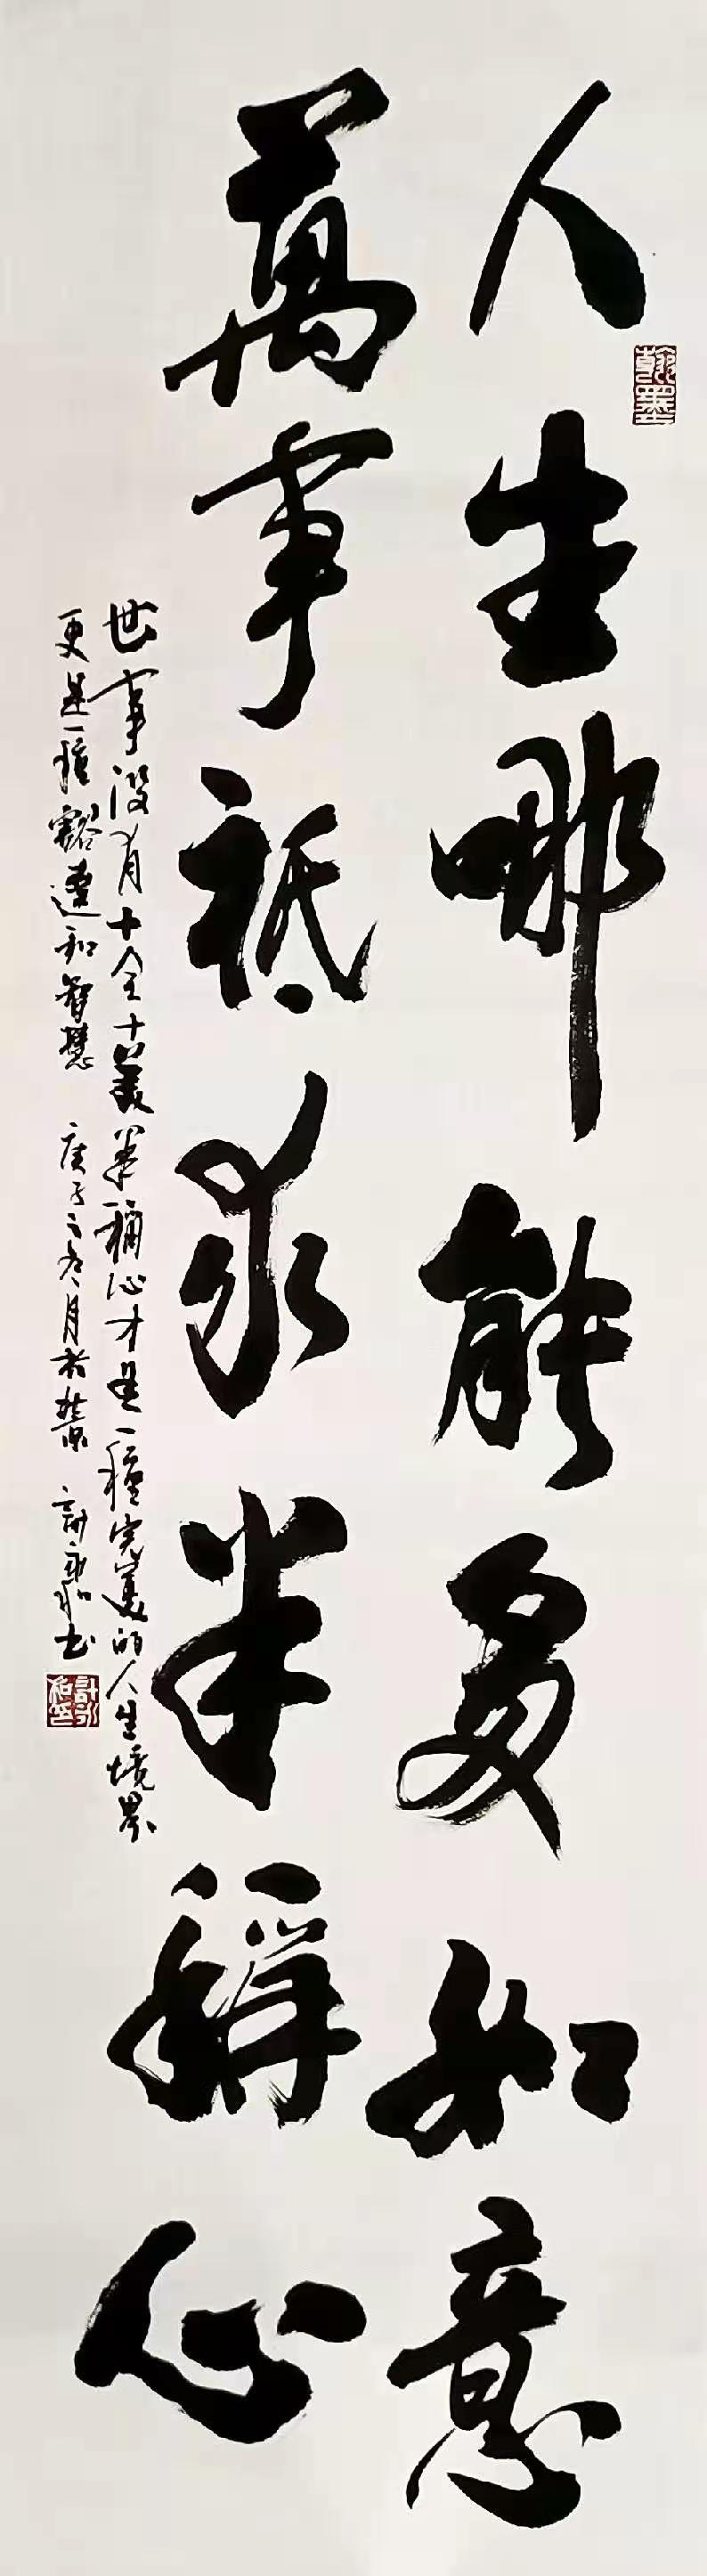 人生哪能多如意
翰墨
萬事祇求半稱心
世事没有十全十美半稱心才是一種完美的人生境界
更是一種豁達和智慧 庚子之冬月於 計永和书
計永和印